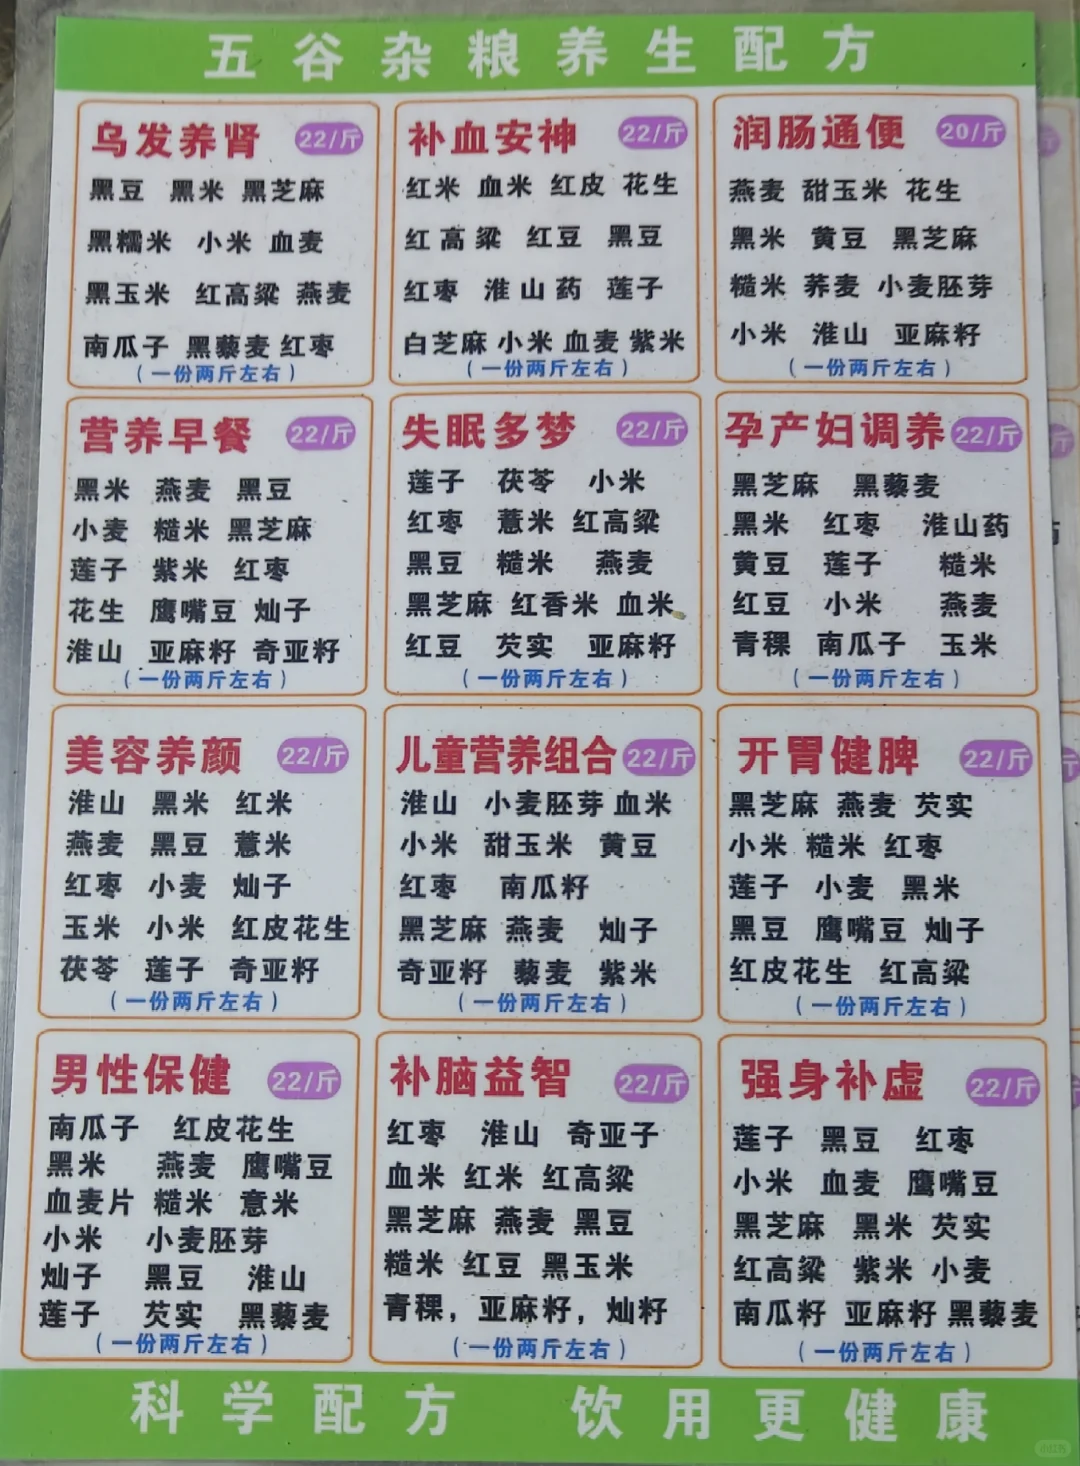 五谷杂粮养生配方
乌发养肾 22/斤
黑豆 黑米 黑芝麻
黑糯米 小米 血麦
黑玉米 红高粱 燕麦
南瓜子 黑藜麦 红枣
(一份两斤左右)
补血安神 22/斤
红米 血米 红皮 花生
红高粱 红豆 黑豆
红枣 淮山药 莲子
白芝麻 小米 血麦 紫米
(一份两斤左右)
润肠通便 20/斤
燕麦 甜玉米 花生
黑米 黄豆 黑芝麻
糙米 荞麦 小麦胚芽
小米 淮山 亚麻籽
(一份两斤左右)
营养早餐 22/斤
黑米 燕麦 黑豆
小麦 糙米 黑芝麻
莲子 紫米 红枣
花生 鹰嘴豆 灿子
淮山 亚麻籽 奇亚籽
(一份两斤左右)
失眠多梦 22/斤
莲子 茯苓 小米
红枣 薏米 红高粱
黑豆 糙米 燕麦
黑芝麻 红香米 血米
红豆 芡实 亚麻籽
(一份两斤左右)
孕产妇调养 22/斤
黑芝麻 黑藜麦
黑米 红枣 淮山药
黄豆 莲子 糙米
红豆 小米 燕麦
青稞 南瓜子 玉米
(一份两斤左右)
美容养颜 22/斤
淮山 黑米 红米
燕麦 黑豆 薏米
红枣 小麦 灿子
玉米 小米 红皮花生
茯苓 莲子 奇亚籽
(一份两斤左右)
儿童营养组合 22/斤
淮山 小麦胚芽 血米
小米 甜玉米 黄豆
红枣 南瓜籽
黑芝麻 燕麦 灿子
奇亚籽 藜麦 紫米
(一份两斤左右)
开胃健脾 22/斤
黑芝麻 燕麦 芡实
小米 糙米 红枣
莲子 小麦 黑米
黑豆 鹰嘴豆 灿子
红皮花生 红高粱
(一份两斤左右)
男性保健 22/斤
南瓜子 红皮花生
黑米 燕麦 鹰嘴豆
血麦片 糙米 意米
小米 小麦胚芽
灿子 黑豆 淮山
莲子 芡实 黑藜麦
(一份两斤左右)
补脑益智 22/斤
红枣 淮山 奇亚子
血米 红米 红高粱
黑芝麻 燕麦 黑豆
糙米 红豆 黑玉米
青稞，亚麻籽，灿籽
(一份两斤左右)
强身补虚 22/斤
莲子 黑豆 红枣
小米 血麦 鹰嘴豆
黑芝麻 黑米 芡实
红高粱 紫米 小麦
南瓜籽 亚麻籽 黑藜麦
(一份两斤左右)
科学配方 饮用更健康
小红书